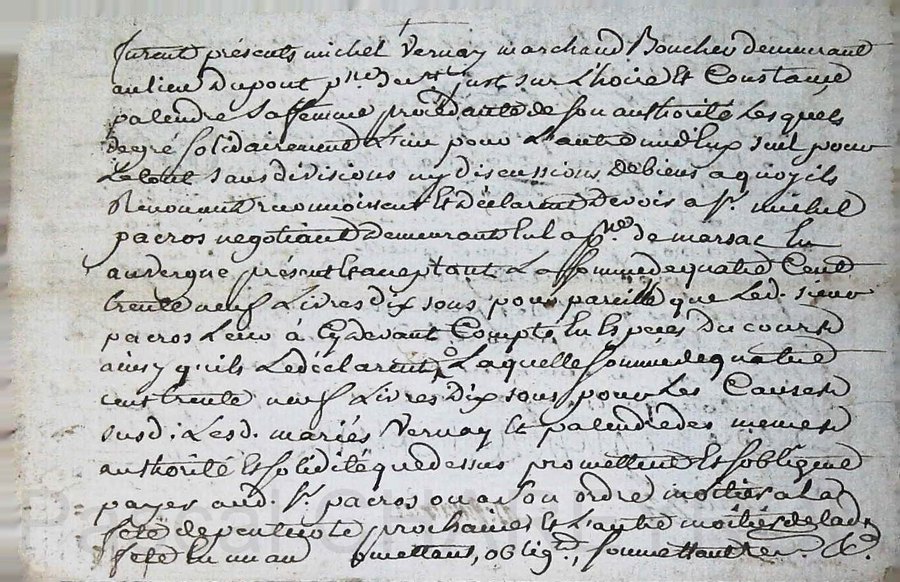 furent présents michel Vernay marchand Boucher demeurant
au lieu du pont p.sse de s.t just sur Lhoire Et Constance
palendre sa femme procédante de son authorité Lesquels
de gré solidairement L'un pour L'autre un d'Eux seul pour
Le tout sans divisions ny discussions De biens a quoy ils
Renonant reconnoissent Et déclarent Devoir a s.r michel
pacros negotiant Demeurant En la p.sse de marsac En
auvergne présent Et acceptant La somme de quatre Cent
trente neuf Livres Dix sous pour pareille que Led. sieur
pacros Leur à Cydevant Compté En Espéces Du cours
ainsy qu'ils Le déclarent, Laquelle somme de quatre
cent trente neuf Livres Dix sous pour Les Causes
susd. Lesd. mariés Vernay Et palendre des memes
authorité Et solidité que dessus promettent Et sobligent
payer aud. s.r pacros ou a son ordre moitiés a la
fete de pentecote prochaine Et L'autre moitiés de lad.
fete En un an omettans, oblig.t, soumettant &c.